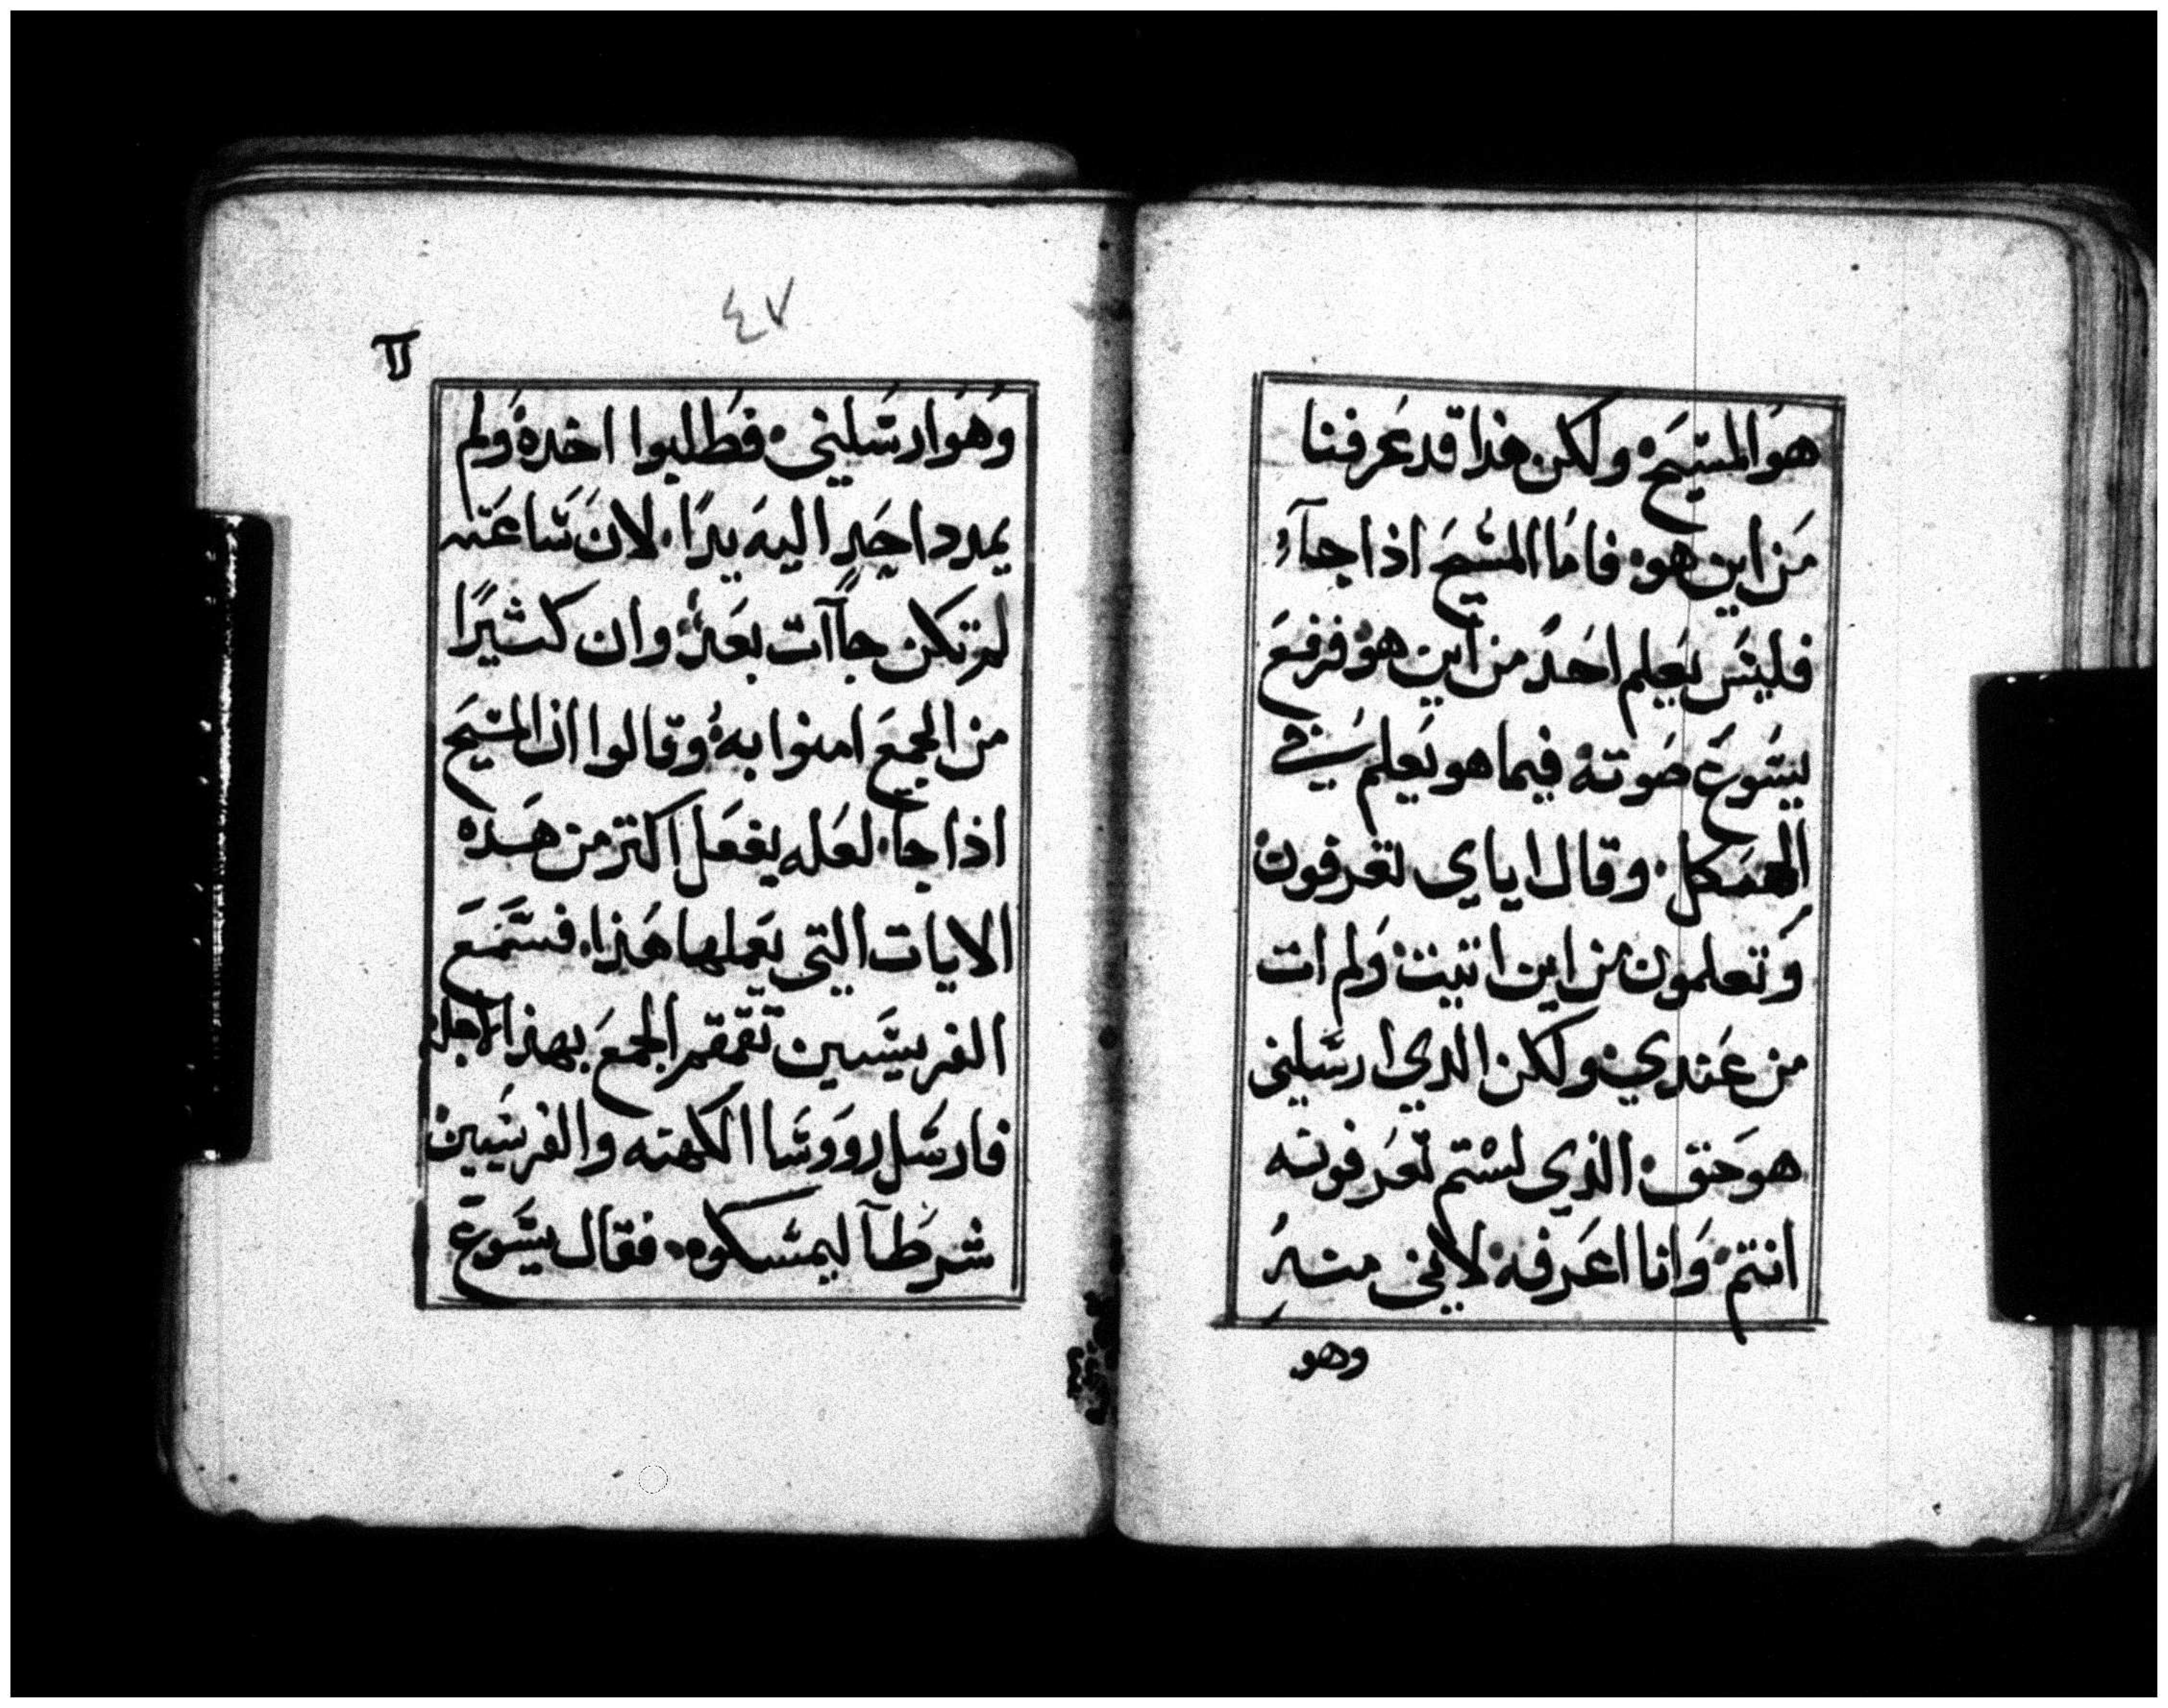 هو المسيح ولكن هذا قد عرفنا
من اين هو فاما المسيح اذا جآء
فليس يعلم احدٌ من اين هو فرفع
يسوع صوته فيما هو يعلم في
الهيكل وقال اياي تعرفون
وتعلمون من اين اتيت ولم ات
من عندي ولكن الدي ارسلني
هو حق الذي لستم تعرفونه
انتم وانا اعرفه لاني منه
وهو
٤٧
وهو ارسلني فطلبوا اخده ولم
يمدد احد اليه يدًا لان ساعته
لم تكن جاآت بعد وان كثيرًا
من الجمع امنوا به وقالوا ان المسيح
اذا جا لعله يفعل اكتر من هده
الايات التي يعملها هذا فسمع
الفريسيين تقمقم الجمع بهذا لاجله
فارسل رووسا الكهنه والفريسيين
شرطآ ليمسكوه فقال يسوع